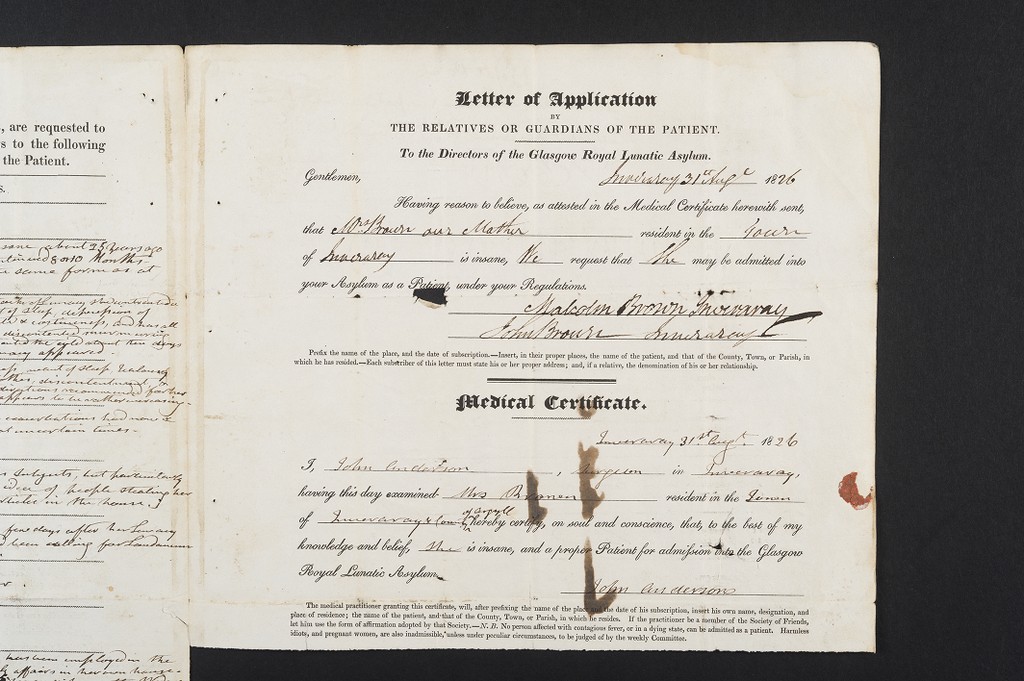 , are requested to
s to the following
the Patient.
s.
sane about 25 Years ago
continued 8 or 10 Months
same form as at
of Sleep, depression of
& costiveness, and has all
discontented
about ten days
appeared.
want of Sleep
discontentment
devotions recommended for her
appears to be rather increasing.
exacerbations had none
at uncertain times.
Subjects, but particularly
idea of people stealing her
articles in the house.
few days after her
been calling for Laudanum
has been employed in the
affairs in her own house
Letter of Application
BY
THE RELATIVES OR GUARDIANS OF THE PATIENT.
To the Directors of the Glasgow Royal Lunatic Asylum.
Gentlemen, Inveraray 31st Augt 1826
Having reason to believe, as attested in the Medical Certificate herewith sent,
that Mrs Brown our Mother resident in the Town
of Inveraray is insane, We request that She may be admitted into
your Asylum as a Patient, under your Regulations.
Malcolm Brown Inveraray
John Brown Inveraray
Prefix the name of the place, and the date of subscription.—Insert, in their proper places, the name of the patient, and that of the County, Town, or Parish, in
which he has resided.—Each subscriber of this letter must state his or her proper address; and, if a relative, the denomination of his or her relationship.
Medical Certificate.
Inveraray 31st Augt. 1826
I, John Anderson, Surgeon in Inveraray,
having this day examined Mrs Brown resident in the Town
of Inveraray & County of Argyll hereby certify, on soul and conscience, that, to the best of my
knowledge and belief, She is insane, and a proper Patient for admission into the Glasgow
Royal Lunatic Asylum.
John Anderson
The medical practitioner granting this certificate, will, after prefixing the name of the place and the date of his subscription, insert his own name, designation, and
place of residence; the name of the patient, and that of the County, Town, or Parish, in which he resides. If the practitioner be a member of the Society of Friends,
let him use the form of affirmation adopted by that Society.—N. B. No person affected with contagious fever, or in a dying state, can be admitted as a patient. Harmless
idiots, and pregnant women, are also inadmissible, unless under peculiar circumstances, to be judged of by the weekly Committee.